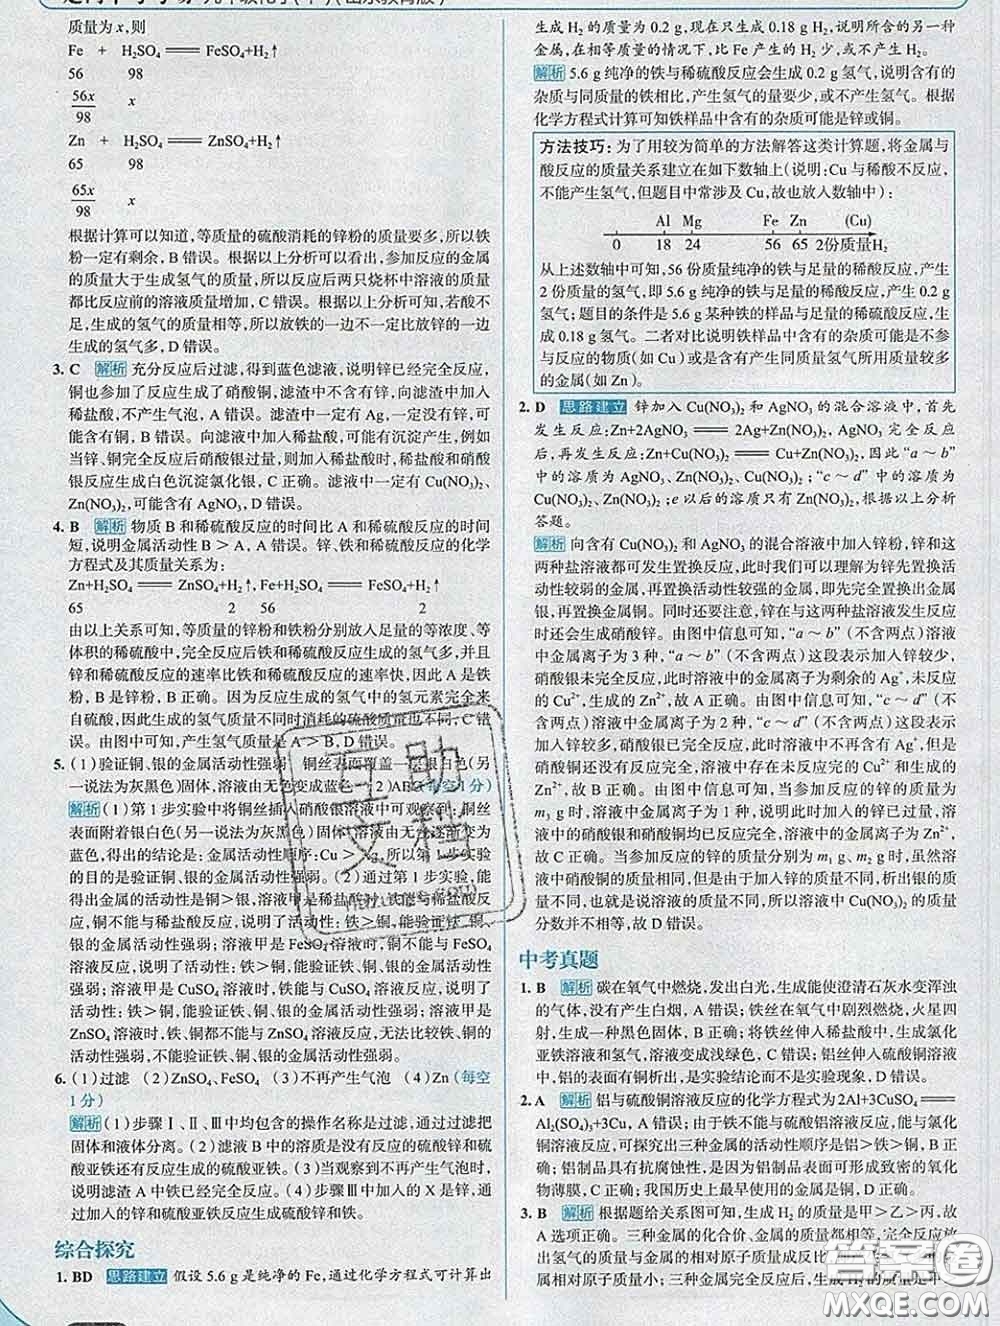 质量为x,则
Fe + H₂SO₄ ══ FeSO₄+H₂↑
56 98
56x/98 x
Zn + H₂SO₄ ══ ZnSO₄+H₂↑
65 98
65x/98 x
根据计算可以知道,等质量的硫酸消耗的锌粉的质量要多,所以铁
粉一定有剩余,B错误。根据以上分析可以看出,参加反应的金属
的质量大于生成氢气的质量,所以反应后两只烧杯中溶液的质量
都比反应前的溶液质量增加,C错误。根据以上分析可知,若酸不
足,生成的氢气的质量相等,所以放铁的一边不一定比放锌的一边
生成的氢气多,D错误。
3. C 解析 充分反应后过滤,得到蓝色滤液,说明锌已经完全反应,
铜也参加了反应生成了硝酸铜,滤渣中不含有锌,向滤渣中加入
稀盐酸,不产生气泡,A错误。滤渣中一定有Ag,一定没有锌,可
能含有铜,B错误。向滤液中加入稀盐酸,可能有沉淀产生,例如
当锌、铜完全反应后硝酸银过量,则加入稀盐酸时,稀盐酸与硝酸
银反应生成白色沉淀氯化银,C正确。滤液中一定含有Cu(NO₃)₂、
Zn(NO₃)₂,可能含有AgNO₃,D错误。
4. B 解析 物质B和稀硫酸反应的时间比A和稀硫酸反应的时间
短,说明金属活动性B>A,A错误。锌、铁和稀硫酸反应的化学
方程式及其质量关系为:
Zn+H₂SO₄══ZnSO₄+H₂↑,Fe+H₂SO₄══FeSO₄+H₂↑
65 2 56 2
由以上关系可知,等质量的锌粉和铁粉分别放入足量的等浓度、等
体积的稀硫酸中,完全反应后铁和稀硫酸生成的氢气多,并且
锌和稀硫酸反应的速率比铁和稀硫酸反应的速率快,因此A是铁
粉,B是锌粉,B正确。因为反应生成的氢气中的氢元素完全来
自硫酸,因此生成的氢气质量不同时消耗的硫酸质量也不同,C错
误。由图中可知,产生氢气质量是A>B,D错误。
5. (1)验证铜、银的金属活动性强弱 铜丝表面覆盖一层银白色(另
一说法为灰黑色)固体,溶液由无色变成蓝色 (2)AEG(每空1分)
解析 (1)第1步实验中将铜丝插入硝酸银溶液中可观察到:铜丝
表面附着银白色(另一说法为灰黑色)固体,溶液由无色逐渐变为
蓝色,得出的结论是:金属活动性顺序:Cu>Ag,所以第1步实验
的目的是验证铜、银的金属活动性强弱。(2)通过第1步实验,能
得出金属的活动性是铜>银,溶液甲是稀盐酸时,铁能与稀盐酸
反应,铜不能与稀盐酸反应,说明了活动性:铁>铜,能验证铁、铜、银
的金属活动性强弱;溶液甲是FeSO₄溶液时,铜不能与FeSO₄
溶液反应,说明了活动性:铁>铜,能验证铁、铜、银的金属活动性
强弱;溶液甲是CuSO₄溶液时,铁能与CuSO₄溶液反应,说明了活
动性:铁>铜,能验证铁、铜、银的金属活动性强弱;溶液甲是
ZnSO₄溶液时,铁、铜都不能与ZnSO₄溶液反应,无法比较铁、铜的
活动性强弱,不能验证铁、铜、银的金属活动性强弱。
6. (1)过滤 (2)ZnSO₄、FeSO₄ (3)不再产生气泡 (4)Zn(每空
1分)
解析 (1)步骤Ⅰ、Ⅱ、Ⅲ中均含的操作名称是过滤,通过过滤把
固体和液体分离。(2)滤液B中的溶质是没有反应的硫酸锌和硫
酸亚铁还有反应生成的硫酸亚铁。(3)当观察到不再产生气泡时,
说明滤渣A中铁已经完全反应。(4)步骤Ⅲ中加入的X是锌,通
过加入的锌和硫酸亚铁反应生成硫酸锌和铁。
综合探究
1. BD 思路建立 假设5.6 g是纯净的Fe,通过化学方程式可计算出
生成H₂的质量为0.2 g,而实际只生成0.18 g H₂。说明含有的另一种
金属,在相等质量的情况下,比Fe产生的H₂少,或不产生H₂。
解析 5.6 g纯净的铁与稀硫酸反应会生成0.2 g氢气,说明含有的
杂质与同质量的铁相比,产生氢气的量要少,或不产生氢气。根据
化学方程式计算可知铁样品中含有的杂质可能是锌或铜。
方法技巧:为了用较为简单的方法解答这类计算题,将金属与
酸反应的质量关系建立在如下数轴上(说明:Cu与稀酸不反应,
不能产生氢气,但题目中常涉及Cu,故也放入数轴中):
Al Mg Fe Zn (Cu)
0 18 24 56 65 2份质量H₂
从上述数轴中可知,56份质量纯净的铁与足量的稀酸反应,产生
2份质量的氢气,即5.6 g纯净的铁与足量的稀酸反应,产生0.2 g
氢气;题目的条件是5.6 g某种铁的样品与足量的稀硫酸反应,生
成0.18 g氢气。二者对比说明铁样品中含有的杂质可能是不参
与反应的物质(如Cu)或是含有产生同质量氢气所用质量较多
的金属(如Zn)。
2. D 思路建立 锌加入Cu(NO₃)₂和AgNO₃的混合溶液中,首先
发生反应:Zn+2AgNO₃══2Ag+Zn(NO₃)₂,AgNO₃完全反应
后,再发生反应:Zn+Cu(NO₃)₂══Cu+Zn(NO₃)₂,因此“a~b”
中的溶质为AgNO₃、Zn(NO₃)₂、Cu(NO₃)₂;“c~d”中的溶质为
Cu(NO₃)₂、Zn(NO₃)₂;e以后的溶质只有Zn(NO₃)₂,根据以上分析
答题。
解析 向含有Cu(NO₃)₂和AgNO₃的混合溶液中加入锌粉,锌和这
两种盐溶液都可发生置换反应,此时我们可以理解为锌先置换活
动性较弱的金属,再置换活动性较强的金属,即先完全置换出金属
银,再置换金属铜。同时还要注意,锌与这两种盐溶液发生反应
时还会生成硝酸锌。由图中信息可知,“a~b”(不含两点)溶液
中金属离子为3种,“a~b”(不含两点)这段表示加入锌较少,
硝酸银未完全反应,此时溶液中的金属离子为剩余的Ag⁺,未反
应的Cu²⁺,生成的Zn²⁺,故A正确。由图中信息可知,“c~d”(不
含两点)溶液中金属离子为2种,“c~d”(不含两点)这段表示
加入锌较多,硝酸银已完全反应,此时溶液中不再含有Ag⁺,但是
硝酸铜还没有完全反应,溶液中存在未反应完的Cu²⁺和生成的
Zn²⁺,故B正确。由图中信息可知,当参加反应的锌的质量为
m g时,溶液中金属离子为1种,说明此时加入的锌已过量,溶
液中的硝酸银和硝酸铜均已反应完全,溶液中金属离子为Zn²⁺,
故C正确。当参加反应的锌的质量分别为m₁ g、m₂ g时,虽然溶
液中硝酸铜的质量相同,但是由于加入锌的质量不同,析出银的质
量不同,也就是说溶液的质量不同,所以溶液中Cu(NO₃)₂的质量
分数并不相等,故D错误。
中考真题
1. B 解析 碳在氧气中燃烧,发出白光,生成能使澄清石灰水变浑浊
的气体,没有产生白烟,A错误;铁丝在氧气中剧烈燃烧,火星四
射,生成一种黑色固体,B正确;将铁丝伸入稀盐酸中,生成氯化
亚铁溶液和氢气,溶液变成浅绿色,C错误;铝丝伸入硫酸铜溶液
中,铝的表面有铜析出,是实验结论而不是实验现象,D错误。
2. A 解析 铝与硫酸铜溶液反应的化学方程式为2Al+3CuSO₄══
Al₂(SO₄)₃+3Cu,A错误;由于铁不能与氯化铝溶液反应,能与氯化
铜溶液反应,可探究出三种金属的活动性顺序是铝>铁>铜,B正
确;铝制品具有抗腐蚀性,是因为铝制品表面可形成致密的氧化
物薄膜,C正确;我国历史上最早使用的金属是铜,D正确。
3. B 解析 根据题给关系图可知,生成H₂的质量是甲>乙>丙,故
A选项正确。三种金属的化合价、金属的质量都相等,完全反应放出
氢气的质量与金属的相对原子质量
相对原子质量小;三种金属完全反应
互助文档
答案圈
MXQE.COM